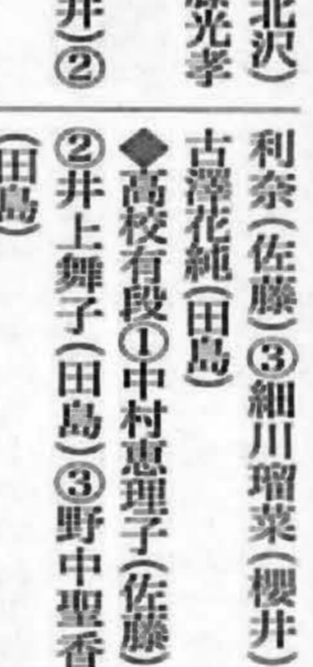 北沢)
藤光孝
井)②
利奈(佐藤)③細川瑠菜(櫻井)
古澤花純(田島)
◆高校有段①中村恵理子(佐藤)
②井上舞子(田島)③野中聖香
(田島)